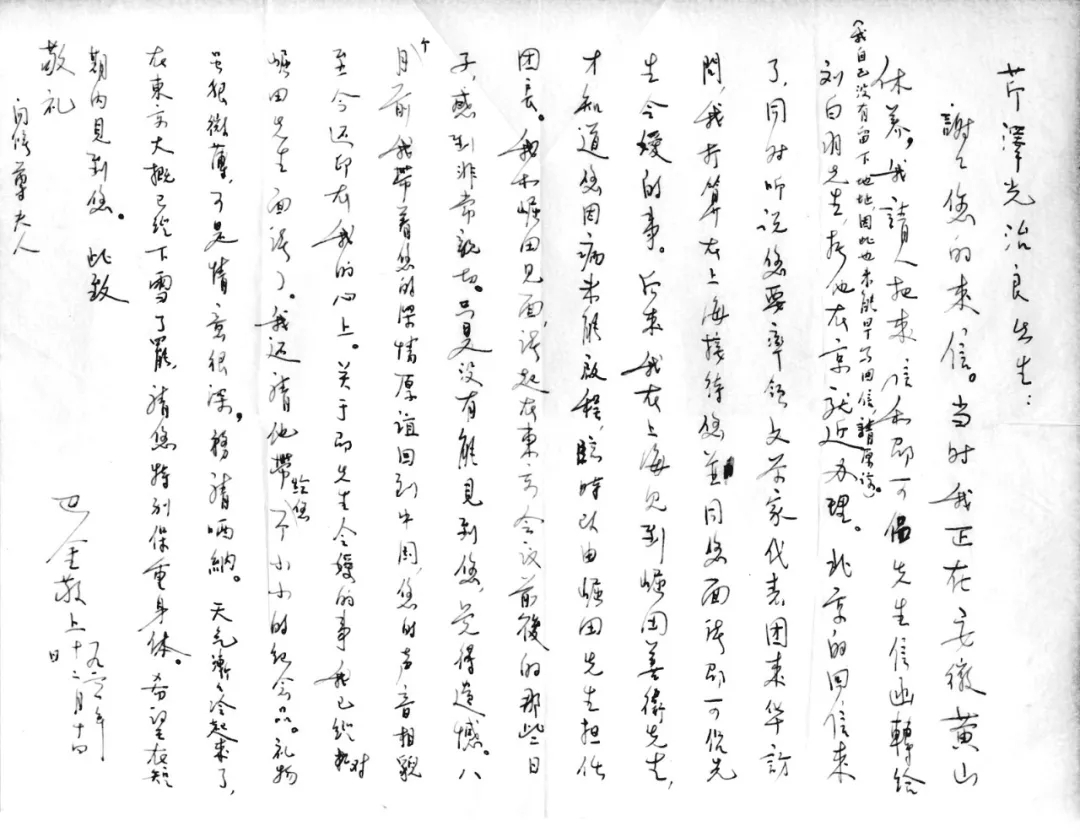 芹澤光治良先生：
謝々您的来信。当时我正在安徽黄山
休养，我請人把来信和郎可侣先生信函轉给
（我自己没有留下地址，因此也未能早写回信，請原諒。）
刘白羽先生，托他在京就近办理。北京的回信来
了，同时听说您要率领文学家代表团来华訪
問，我打算在上海接待您並同您面談郎可侣先
生令嫒的事。后来我在上海见到崛田善衛先生，
才知道您因病未能啟程，臨時改由崛田先生担任
团長。我和崛田见面，談起在東京会议前後的那些日
子，感到非常親切。只是没有能見到您，觉得遗憾。八
个月前我带着您的深情厚谊回到中国，您的声音相貌
至今还印在我的心上。关于郎先生令嫒的事我已经和
崛田先生面談了。我还請他帶给您一个小小的纪念品。礼物
虽很微薄，可是情意很深，務請哂納。天气漸々冷起来了，
在東京大概已经下雪了罷，请您特别保重身体。希望在短
期内見到您。 此致
敬礼
问候尊夫人
巴金敬上 一九六一年
十二月十四
日